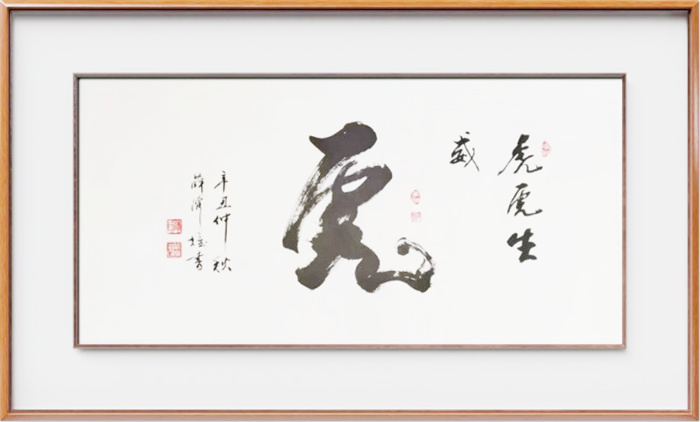 虎虎生
威
虎
辛丑仲秋
薛
书